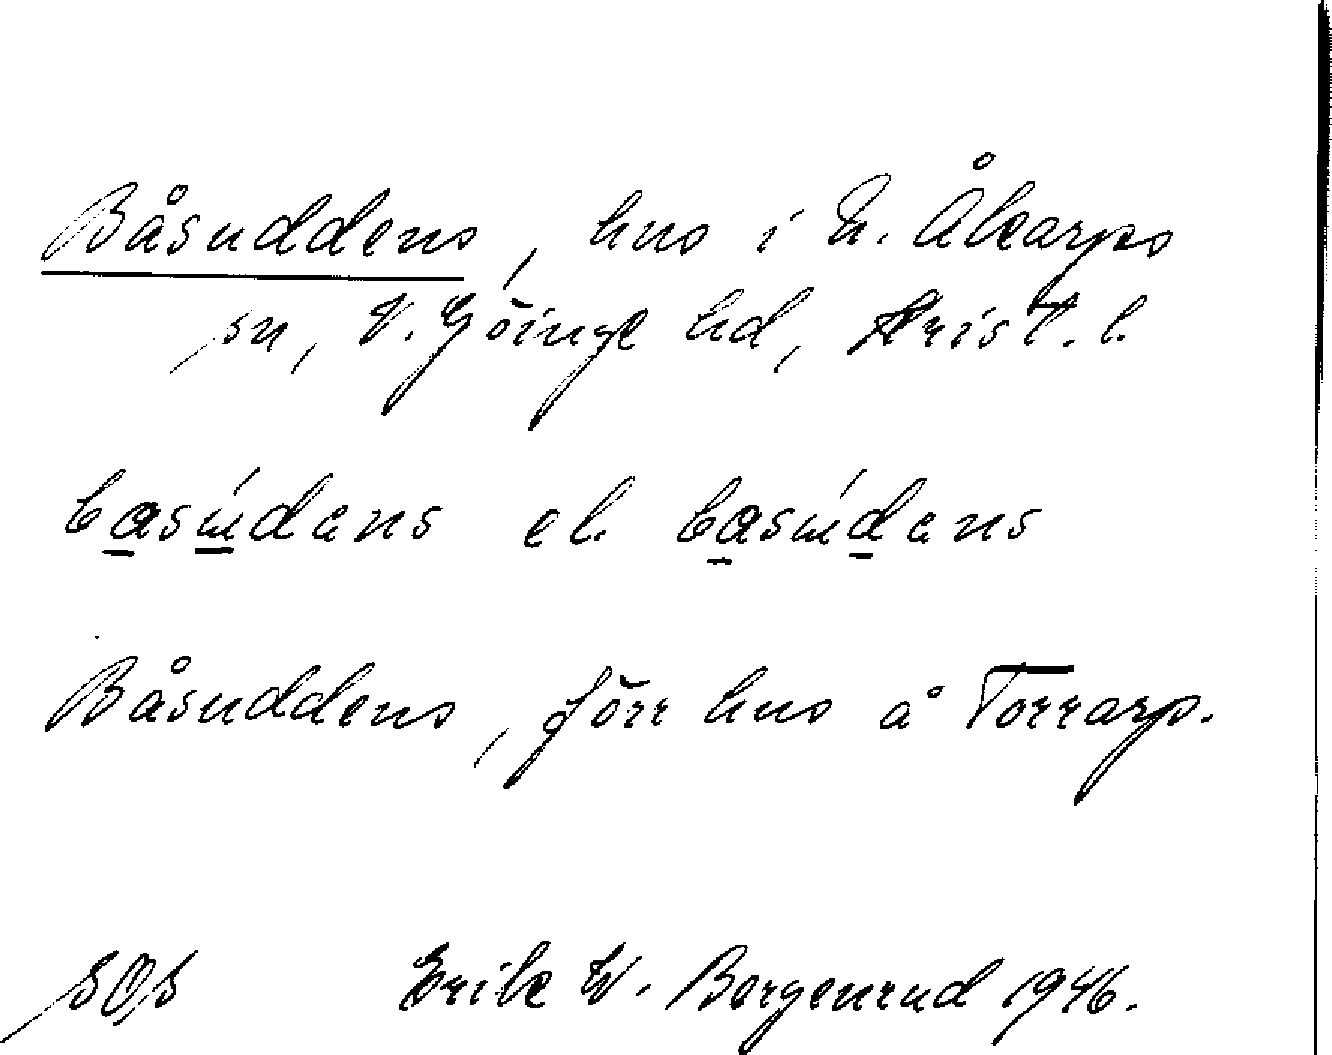 Båsuddens, hus i N. Åkarps
sn, V. Göinge hd, Krist. l.
basúdens el. basúdens
Båsuddens, förr hus å Torrarp.
SOS Erik W. Borgenrud 1946.